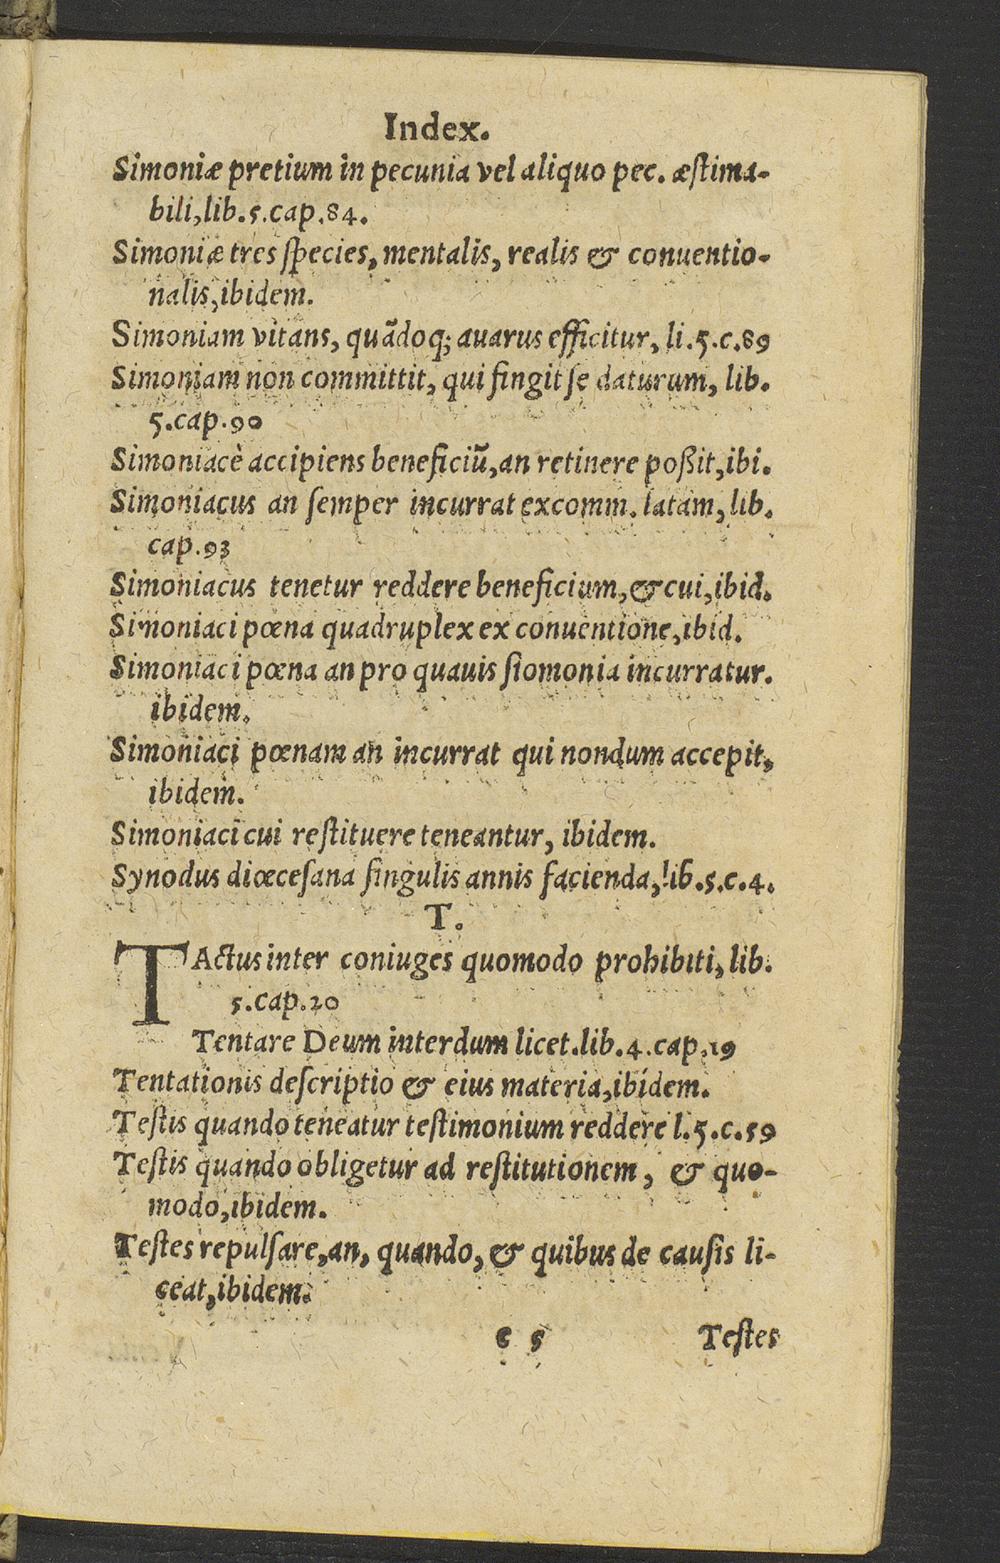 Index.
Simoniæ pretium in pecunia vel aliquo pec. æſtima-
bili, lib. 5. cap. 84.
Simoniæ tres ſpecies, mentalis, realis & conuentio-
nalis, ibidem.
Simoniam vitans, quãdoq; auarus efficitur, li. 5. c. 89
Simoniam non committit, qui fingit ſe daturum, lib.
5. cap. 90
Simoniacè accipiens beneficiũ, an retinere poßit, ibi.
Simoniacus an ſemper incurrat excomm. latam, lib.
cap. 93
Simoniacus tenetur reddere beneficium, & cui, ibid.
Simoniaci pœna quadruplex ex conuentione, ibid.
Simoniaci pœna an pro quauis ſiomonia incurratur.
ibidem.
Simoniaci pœnam an incurrat qui nondum accepit,
ibidem.
Simoniaci cui reſtituere teneantur, ibidem.
Synodus diœceſana ſingulis annis facienda, lib. 5. c. 4.
T.
TActus inter coniuges quomodo prohibiti, lib.
5. cap. 20
Tentare Deum interdum licet. lib. 4. cap. 19
Tentationis deſcriptio & eius materia, ibidem.
Teſtis quando teneatur teſtimonium reddere l. 5. c. 59
Teſtis quando obligetur ad reſtitutionem, & quo-
modo, ibidem.
Teſtes repulſare, an, quando, & quibus de cauſis li-
ceat, ibidem.
c 5 Teſtes